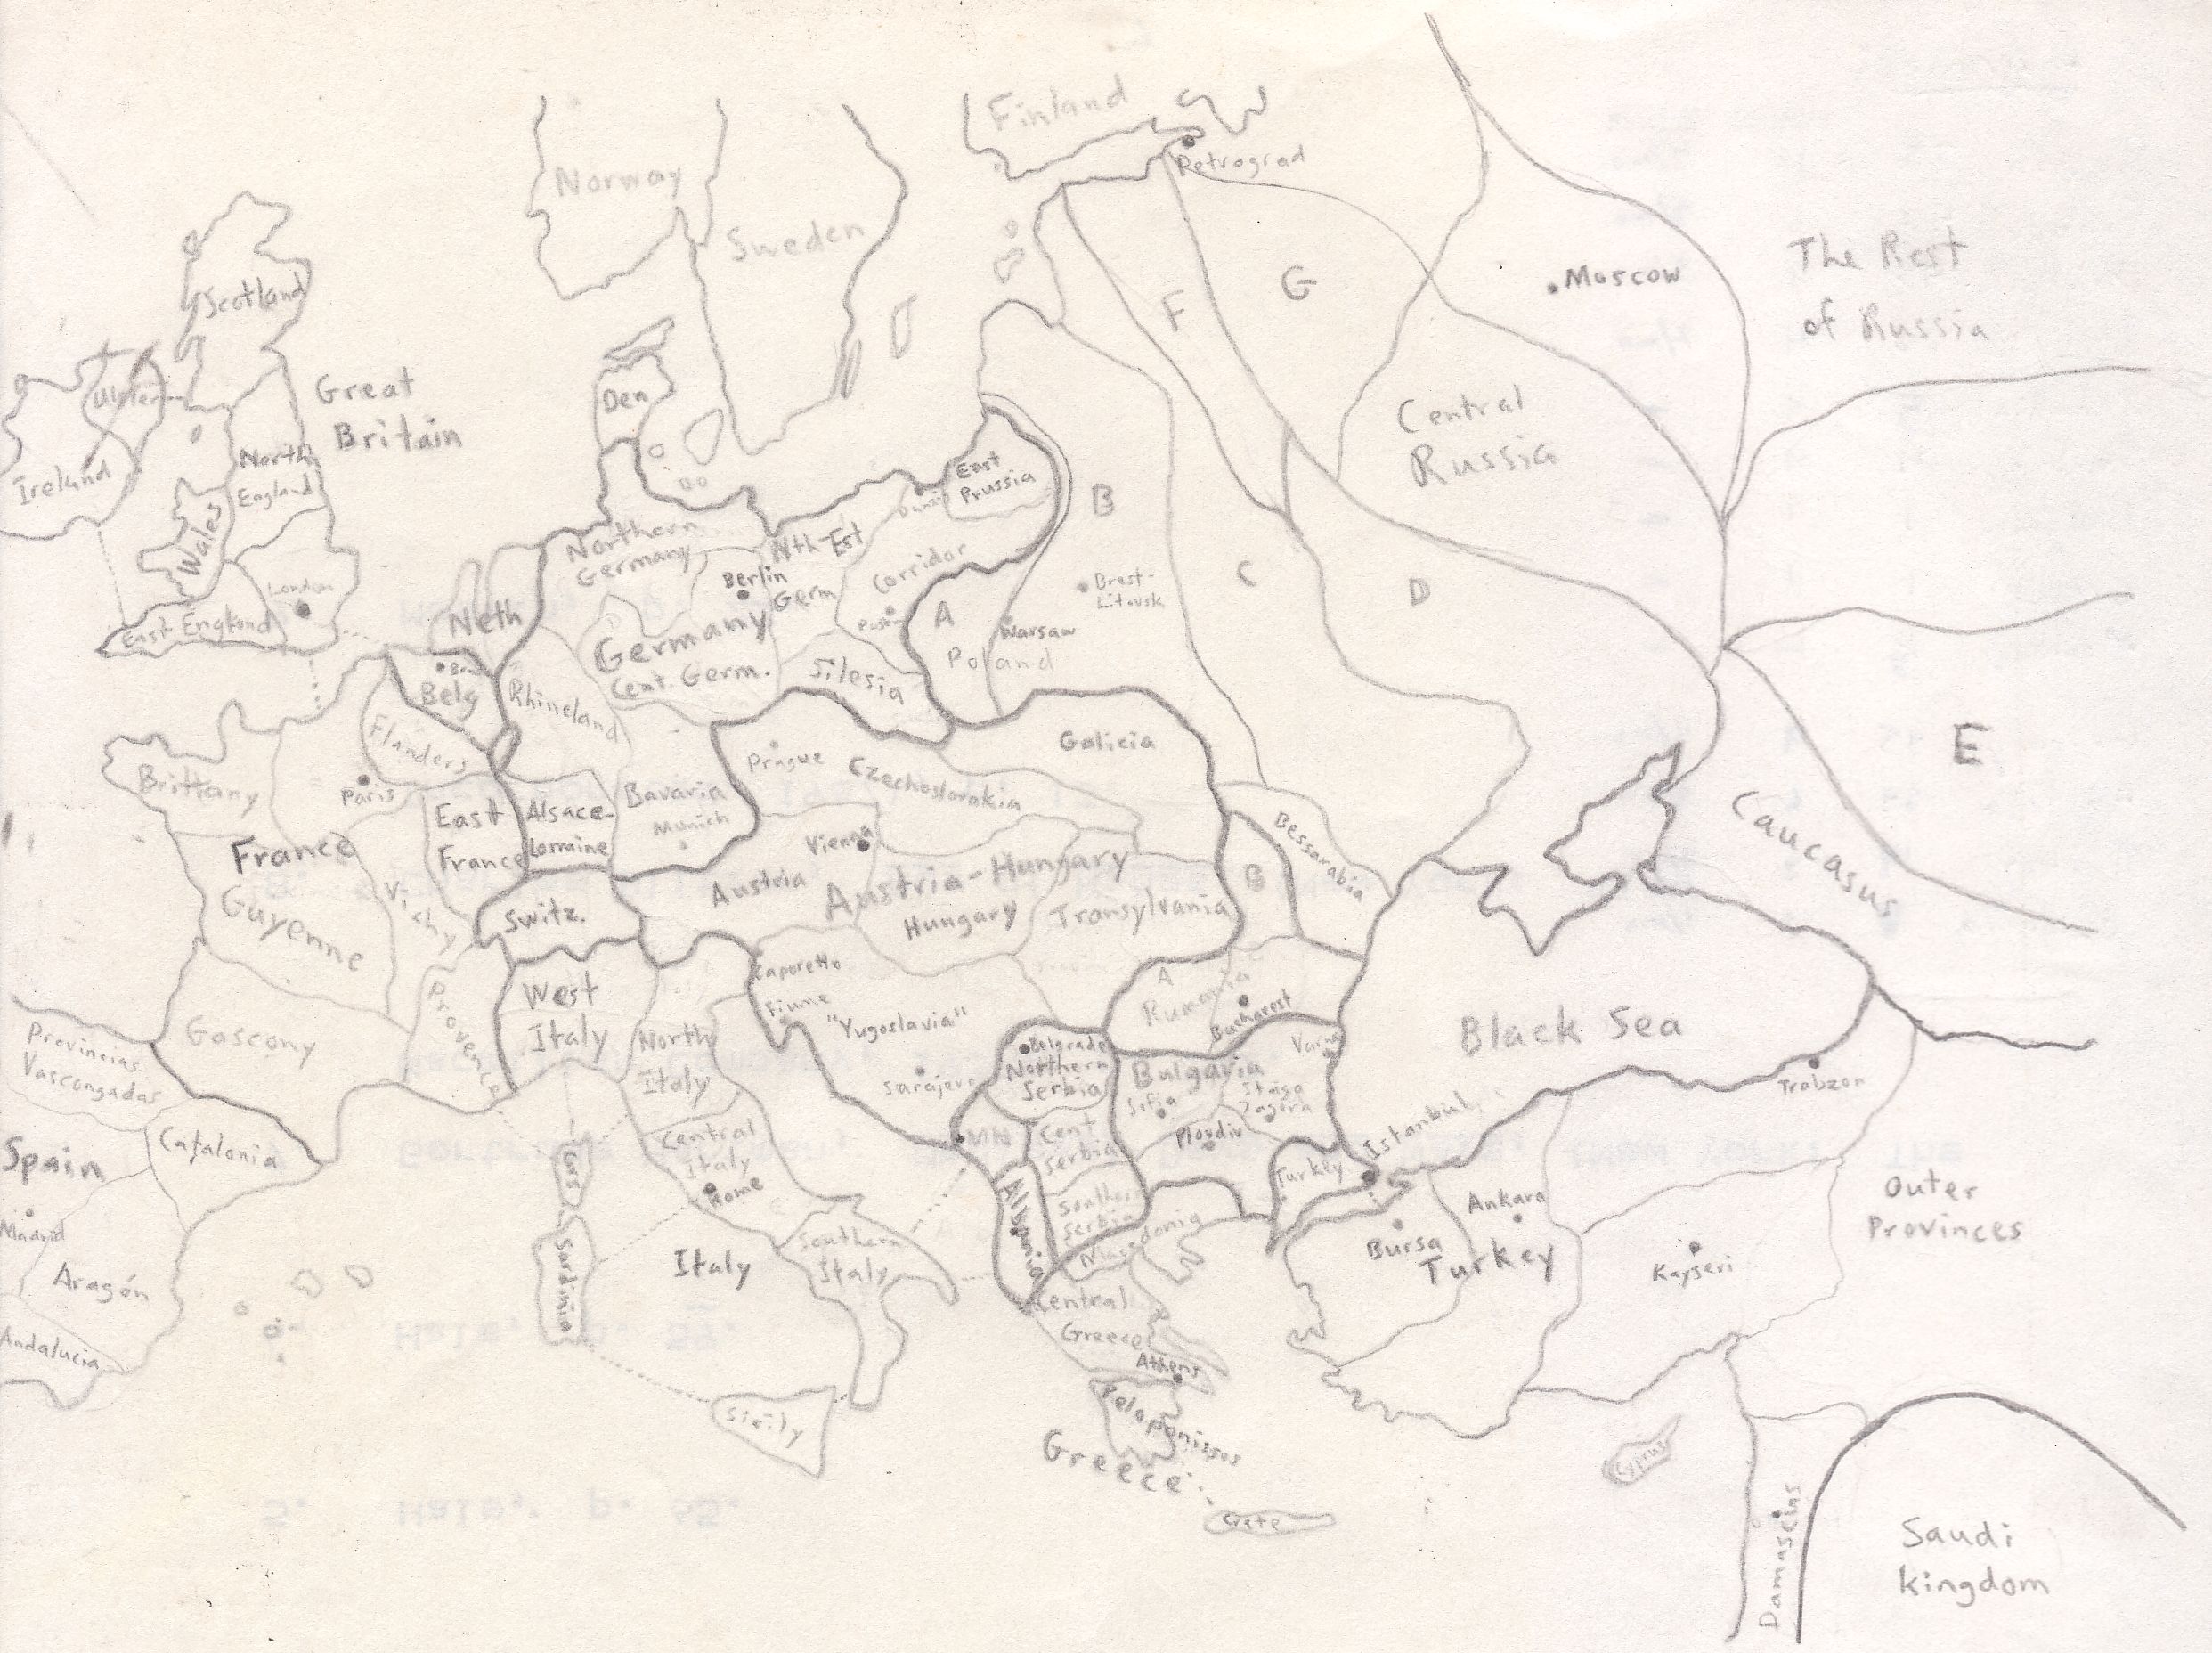 Finland
Norway
Sweden
Petrograd
Moscow
The Rest
of Russia
Scotland
Ulster
Ireland
Great
Britain
North
England
Wales
London
East England
Den
F
G
Central
Russia
B
C
D
E
East
Prussia
Northern
Germany
Nth-Est
Germ
Corridor
Berlin
Germany
Cent. Germ.
Silesia
A
Brest-
Litovsk
Warsaw
Poland
Neth
Belg
Rhineland
Flanders
Brittany
Paris
East
France
Alsace-
Lorraine
Bavaria
Munich
France
Guyenne
Vichy
Switz.
Provence
Gascony
Prague
Czechoslovakia
Galicia
Vienna
Austria
Austria-Hungary
Hungary
Transylvania
Bessarabia
B
Caucasus
Caporetto
Fiume
"Yugoslavia"
Sarajevo
A
Rumania
Bucharest
Black Sea
West
Italy
North
Italy
Central
Italy
Rome
Italy
Southern
Italy
Cors
Sardinia
Sicily
Provincias
Vascongadas
Catalonia
Spain
Madrid
Aragón
Andalucia
Belgrade
Northern
Serbia
MN
Cent
Serbia
Southern
Serbia
Albania
Macedonia
Bulgaria
Sifia
Staga
Zagora
Varna
Plovdiv
Turkey
Istanbul
Central
Greece
Athens
Peloponissos
Greece
Crete
Bursa
Ankara
Turkey
Kayseri
Trabzon
Outer
Provinces
Cyprus
Damascus
Saudi
Kingdom